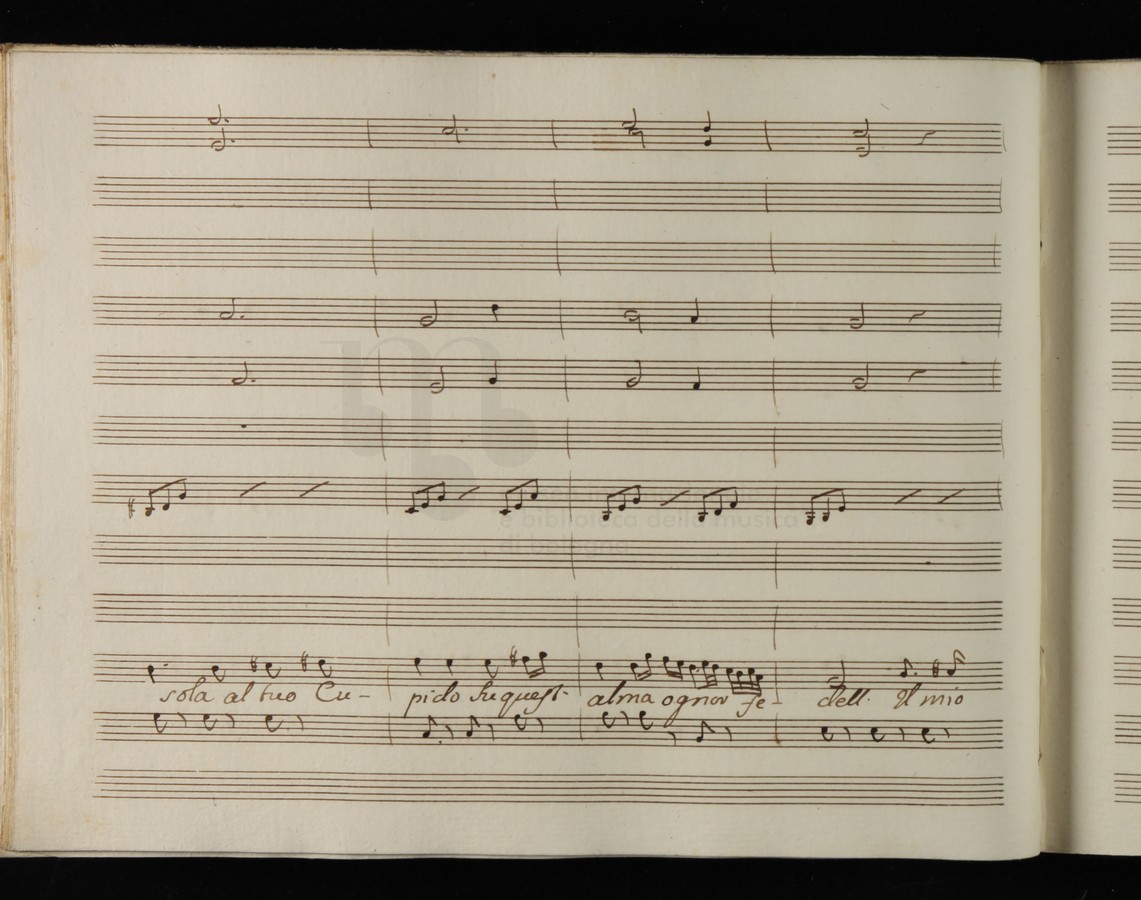 e biblioteca della musica
di bologna
sola al tuo Cu- pido su quest' alma ognor fe- dell. Il mio